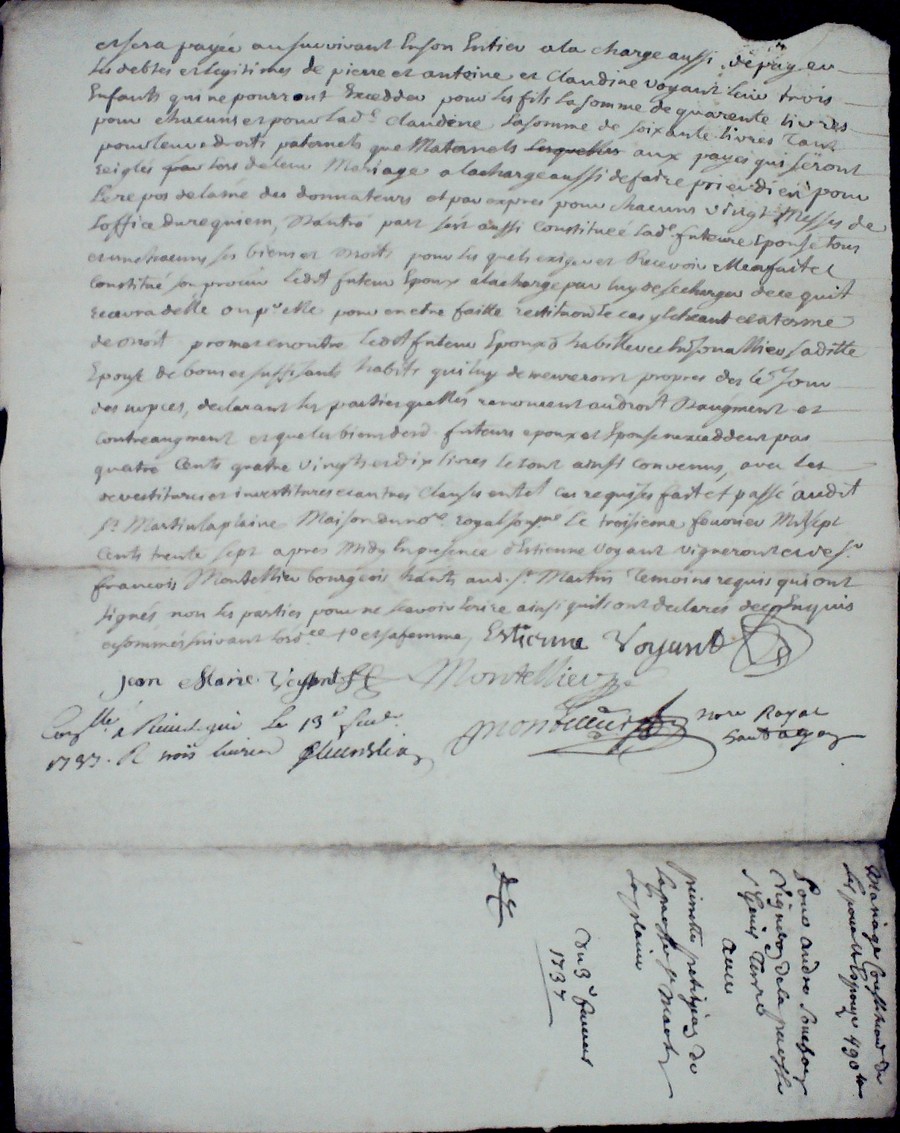 et sera payée au survivant en son entier a la charge aussi de payer
les debtes et legitimes de pierre et antoine et Claudine voyant leur trois
Enfants qui ne pourront Exceder pour les fils la somme de quarente livres
pour chacuns et pour lad.e Claudine la somme de soixante livres Tant
pour leur droits paternels que Maternels lesquelles aux payes qui seront
Reiglés lors de leur Mariage a la charge aussi de faire prier dieu pour
le repos de lame des donnateurs et par expres pour chacuns vingt Messes de
Loffice du requiem, Dautre part sest aussi Constituée lad.e future Epouse tous
et un chacuns ses biens et droits pour les quels exiger et Recevoir Elle a fait et
Constitué son procur ledit futeur Epoux a la charge par luy de se charger de ce quil
Recevra delle ou pr elle pour en etre faitte restitution le cas y echeant et a la forme
de droit promet en outre ledit futeur Epoux d habiller et Enjouallier sadite
Epouse de bons et suffisants habits qui luy demeureront propres des le jour
des nopces, declarant les parties quelles renoncent au droit Daugment et
Contreaugment et que les biens desd. futeurs epoux et Epouse nexceddent pas
quatre Cents quatre vingts et dix livres le tout ainsi convenus, avec les
devestitures et investitures et autres Clauses en tel cas requises fait et passé audit
St. Martin la plaine Maison du no.re royal soussné le troisieme fevrier Mil sept
Cents trente sept apres Midy En presence d'Estienne Voyant vigneront et de Sr
francois Montellier bourgeois hants aud. St. Martin Temoins requis qui ont
signés non les parties pour ne scavoir Ecrire ainsi quils ont declarés de ce Enquis
et sommés suivant lord.ce et sa femme, Estienne Voyant
Jean Marie Montellier
Conllé a le 13e
1737. R
nore Royal
Mariage Constitution de
490 lt
andre
vigneron de la paroisse
St Genis Terre
avec
pierrette de
la paroisse St Martin
la plaine
Du 3e fevrier
1737